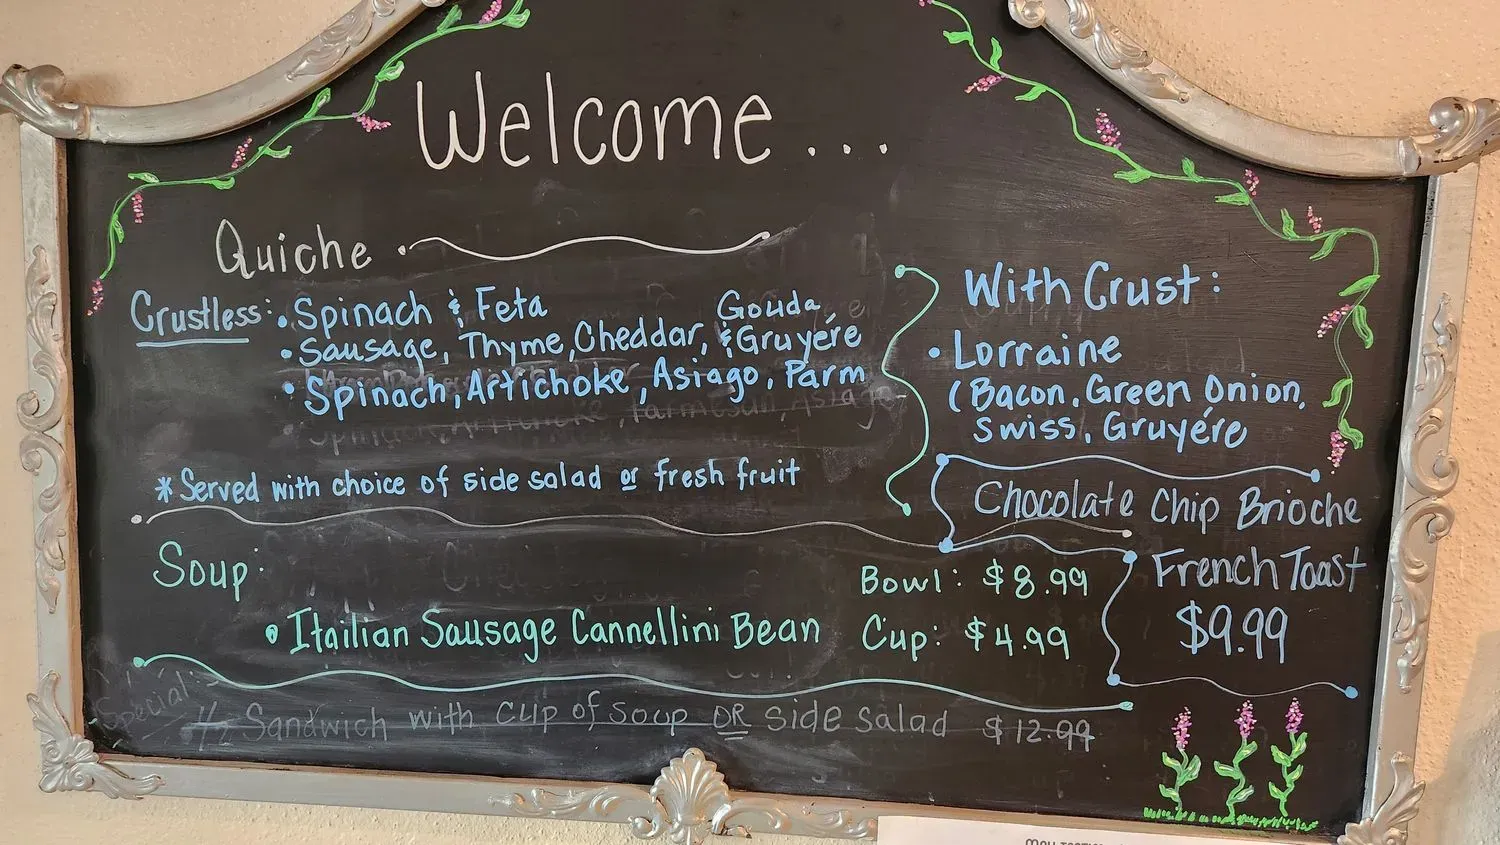 Welcome...
Quiche
Crustless:
• Spinach & Feta
• Sausage, Thyme, Cheddar, Gouda, & Gruyére
• Spinach, Artichoke, Asiago, Parm
* Served with choice of side salad or fresh fruit
With Crust:
• Lorraine
(Bacon, Green Onion,
Swiss, Gruyére
Chocolate Chip Brioche
French Toast
$9.99
Soup:
• Itailian Sausage Cannellini Bean
Bowl: $8.99
Cup: $4.99
Special:
1/2 Sandwich with cup of soup OR side salad $12.99